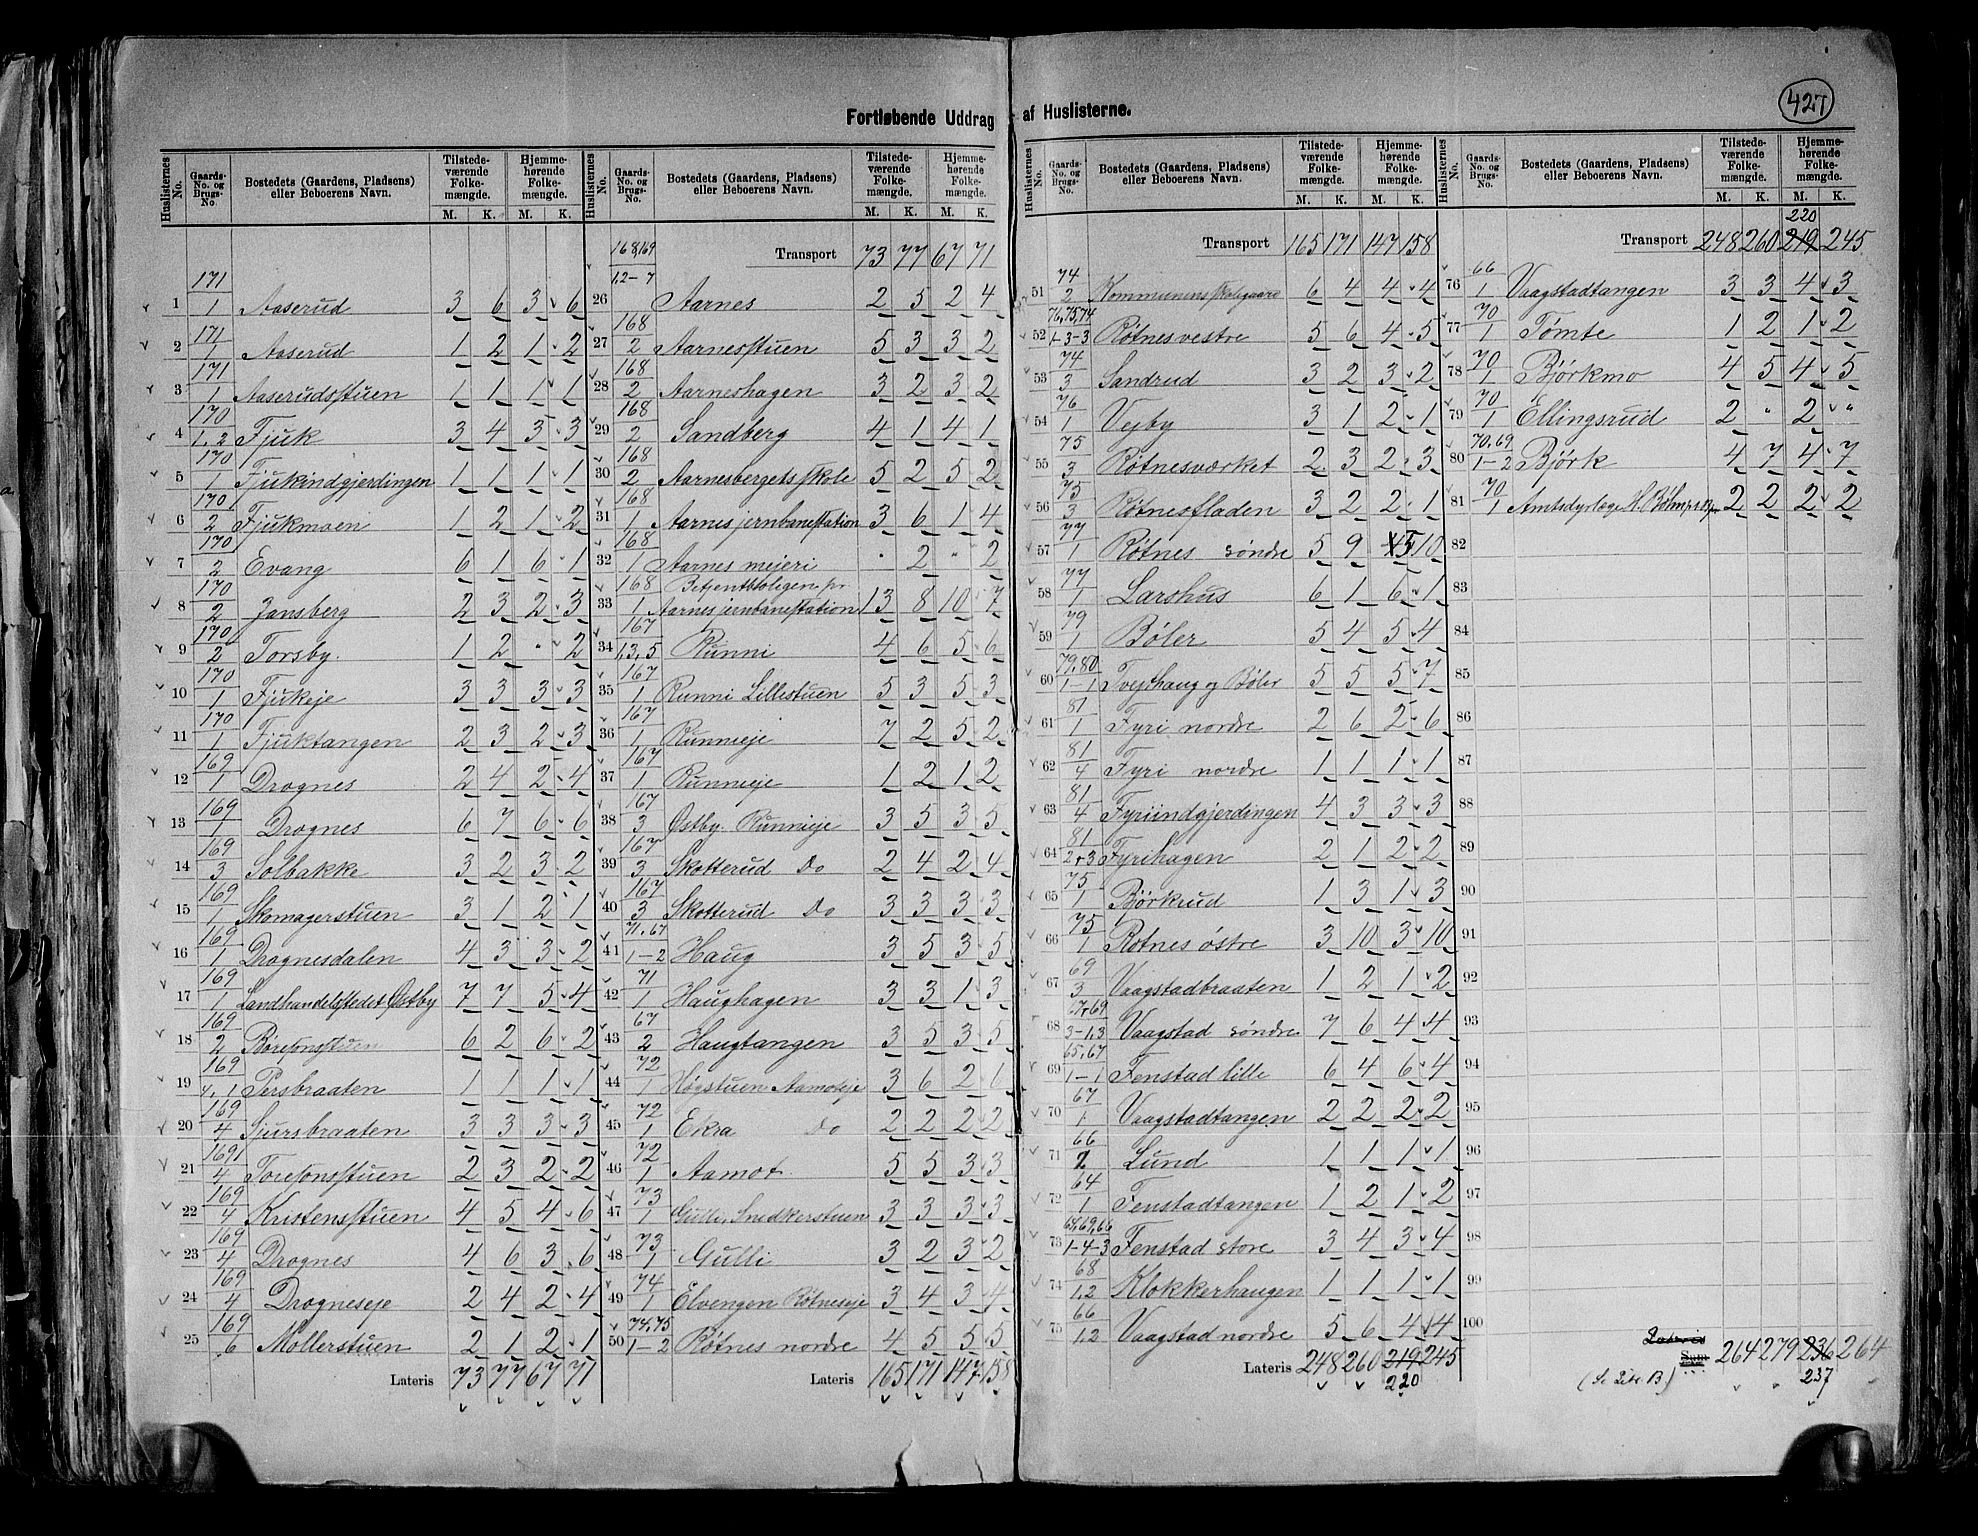 427
Fortløbende Uddrag af Huslisterne.
Huslisternes No. Gaards-No. og Brugs-No. Bostedets (Gaardens, Pladsens) eller Beboerens Navn. Tilstedeværende Folkemængde. M. K. Hjemmehørende Folkemængde. M. K.
1 171/1 Aaserud 3 6 3 6
2 171/1 Aaserud 1 2 1 2
3 171/1 Aaserudsstuen 1 1 1 1
4 170/1,2 Fjuk 3 4 3 3
5 170/1 Fjukindgjerdingen 1 1 1 1
6 170/2 Fjukmoen 1 2 1 2
7 170/2 Evang 6 1 6 1
8 170/2 Jansberg 2 3 2 3
9 170/2 Torsby. 1 2 " 2
10 170/1 Fjukeje 3 3 3 3
11 170/1 Fjuktangen 2 3 2 3
12 169/1 Drognes 2 4 2 4
13 169/1 Drognes 6 7 6 6
14 169/3 Solbakke 3 2 3 2
15 169/1 Skomagerstuen 3 1 2 1
16 169/1 Drognesdalen 4 3 3 2
17 169/1 Landhandelsstedet Østby 7 7 5 4
18 169/2 Børesonsstuen 6 2 6 2
19 169/4,1 Persbraaten 1 1 1 1
20 169/4 Sjursbraaten 3 3 3 3
21 169/4 Toresonsstuen 2 3 2 2
22 169/4 Kristensstuen 4 5 4 6
23 169/4 Drognes 4 6 3 6
24 169/4 Drogneseje 2 4 2 4
25 169/6 Møllerstuen 2 1 2 1
Lateris 73 77 67 71
Huslisternes No. Gaards-No. og Brugs-No. Bostedets (Gaardens, Pladsens) eller Beboerens Navn. Tilstedeværende Folkemængde. M. K. Hjemmehørende Folkemængde. M. K.
Transport 73 77 67 71
26 168,169/1,2-7 Aarnes 2 5 2 4
27 168/2 Aarnesstuen 5 3 3 2
28 168/2 Aarneshagen 3 2 3 2
29 168/2 Sandberg 4 1 4 1
30 168/2 Aarnesbergets skole 5 2 5 2
31 168/1 Aarnes jernbanestation 3 6 1 4
32 168/1 Aarnes mejeri " 2 " 2
33 168/1 Betjentboligen pr Aarnes jernbanestation 13 8 10 7
34 167/1,3,5 Runni 4 6 5 6
35 167/1 Runni Lillestuen 5 3 5 3
36 167/1 Runnieje 7 2 5 2
37 167/1 Runnieje 1 2 1 2
38 167/3 Østby. Runnieje 3 5 3 5
39 167/3 Skotterud Do 2 4 2 4
40 167/3 Skotterud Do 3 3 3 3
41 71,67/1-2 Haug 3 5 3 5
42 71/1 Haughagen 3 3 1 3
43 67/2 Haugtangen 3 5 3 5
44 72/1 Høgstuen Aamoteje 3 6 2 6
45 72/1 Ekra Do 2 2 2 2
46 72/1 Aamot 5 5 3 3
47 73/1 Gulli, Snedkerstuen 3 3 3 3
48 73/1 Gulli 3 2 3 2
49 74/1 Elvengen Røtneseje 3 4 3 4
50 74,75/1-2 Røtnes nordre 4 5 5 5
Lateris 165 171 147 158
Huslisternes No. Gaards-No. og Brugs-No. Bostedets (Gaardens, Pladsens) eller Beboerens Navn. Tilstedeværende Folkemængde. M. K. Hjemmehørende Folkemængde. M. K.
Transport 165 171 147 158
51 74/2 Kommunens skolegaard 6 4 4 4
52 76,75,74/1-3-3 Røtnes vestre 5 6 4 5
53 74/3 Sandrud 3 2 3 2
54 76/1 Vejby 3 1 2 1
55 75/3 Røtnesværket 2 3 2 3
56 75/3 Røtnesfladen 3 2 2 1
57 77/1 Røtnes søndre 5 9 5 10
58 77/1 Larshus 6 1 6 1
59 79/1 Bøler 5 4 5 4
60 79,80/1-1 Tvejthaug og Bøler 5 5 5 7
61 81/1 Fyri nordre 2 6 2 6
62 81/4 Fyri nordre 1 1 1 1
63 81/4 Fyriindgjerdingen 4 3 3 3
64 81/2+3 Fyrihagen 2 1 2 2
65 75/1 Børkrud 1 3 1 3
66 75/1 Røtnes østre 3 10 3 10
67 69/3 Vaagstadbraaten 1 2 1 2
68 67,69/3-1,3 Vaagstad søndre 7 6 4 4
69 65,67/1-1 Fenstad lille 6 4 6 4
70 67/1 Vaagstadtangen 2 2 2 2
71 66/2 Lund 1 1 1 1
72 64/1 Fenstadtangen 1 2 1 2
73 64,69,66/1-4-3 Fenstad store 3 4 3 4
74 68/1,2 Klokkerhaugen 1 1 1 1
75 66/1,2 Vaagstad nordre 5 6 4 4
Lateris 248 260 219 245
220
Huslisternes No. Gaards-No. og Brugs-No. Bostedets (Gaardens, Pladsens) eller Beboerens Navn. Tilstedeværende Folkemængde. M. K. Hjemmehørende Folkemængde. M. K.
220
Transport 248 260 219 245
76 66/1 Vaagstadtangen 3 3 4 3
77 70/1 Tømte 1 2 1 2
78 70/1 Bjørkmo 4 5 4 5
79 70/1 Ellingsrud 2 " 2 "
80 70,69/1-2 Bjørk 4 7 4 7
81 70/1 Amtsdyrlæge 2 2 2 2
82
83
84
85
86
87
88
89
90
91
92
93
94
95
96
97
98
99
100
Lateris
Sum 264 279 236 264
(Se Litr. B) 237